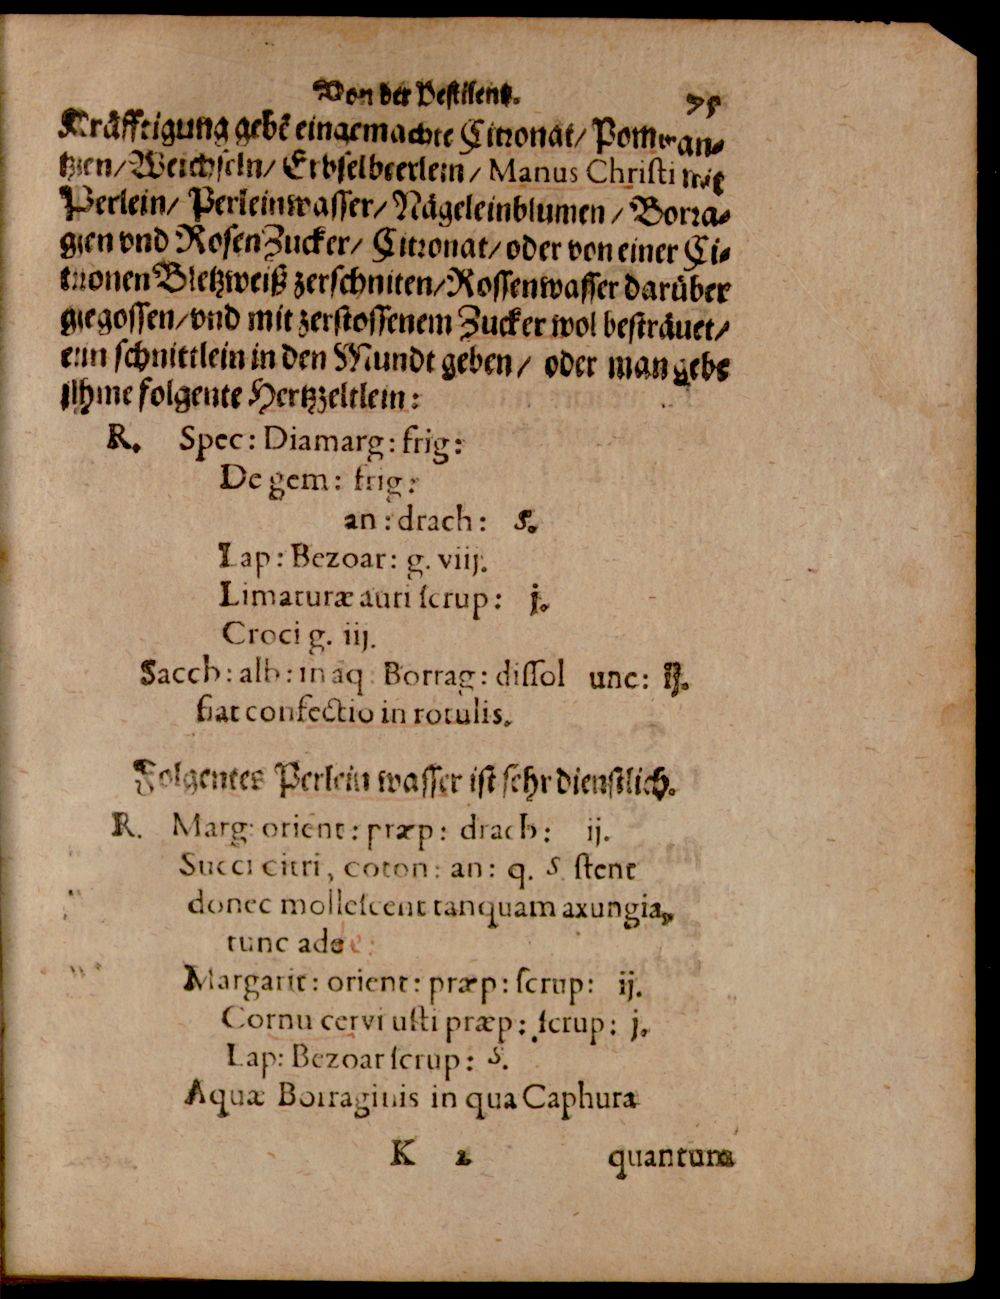 Von der Pestilentz. 75
Kräfftigung gebē eingemachte Citronat/ Pomeran-
tzien/ Weichseln/ Erbselbeerlein/ Manus Christi mit
Perlein/ Perleinwasser/ Nägeleinblumen / Borra-
gien vnd Rosen Zucker/ Citronat/ oder von einer Ci-
tronen Bletzweiß zerschniten/ Rossenwasser darüber
giegossen/ vnd mit zerstossenem Zucker wol besträuet/
ein schnittlein in den Mundt geben/ oder man gebe
ihme folgente Hertzzeltlein:
R. Spec: Diamarg: frig:
De gem: frig:
an: drach: s.
Lap: Bezoar: g. viij.
Limaturæ auri scrup: j.
Croci g. iij.
Sacch: alb: in aq Borrag: dissol unc: ij.
fiat confectio in rotulis.
Folgentes Perlein wasser ist sehr dienstlich.
R. Marg: orient: præp: drach: ij.
Succi citri, coton: an: q. s stent
donec mollescent tanquam axungia,
tunc ade
Margarit: orient: præp: scrup: ij.
Cornu cervi usti præp: scrup: j.
Lap: Bezoar scrup: s.
Aquæ Borraginis in qua Caphura
K 2 quantum